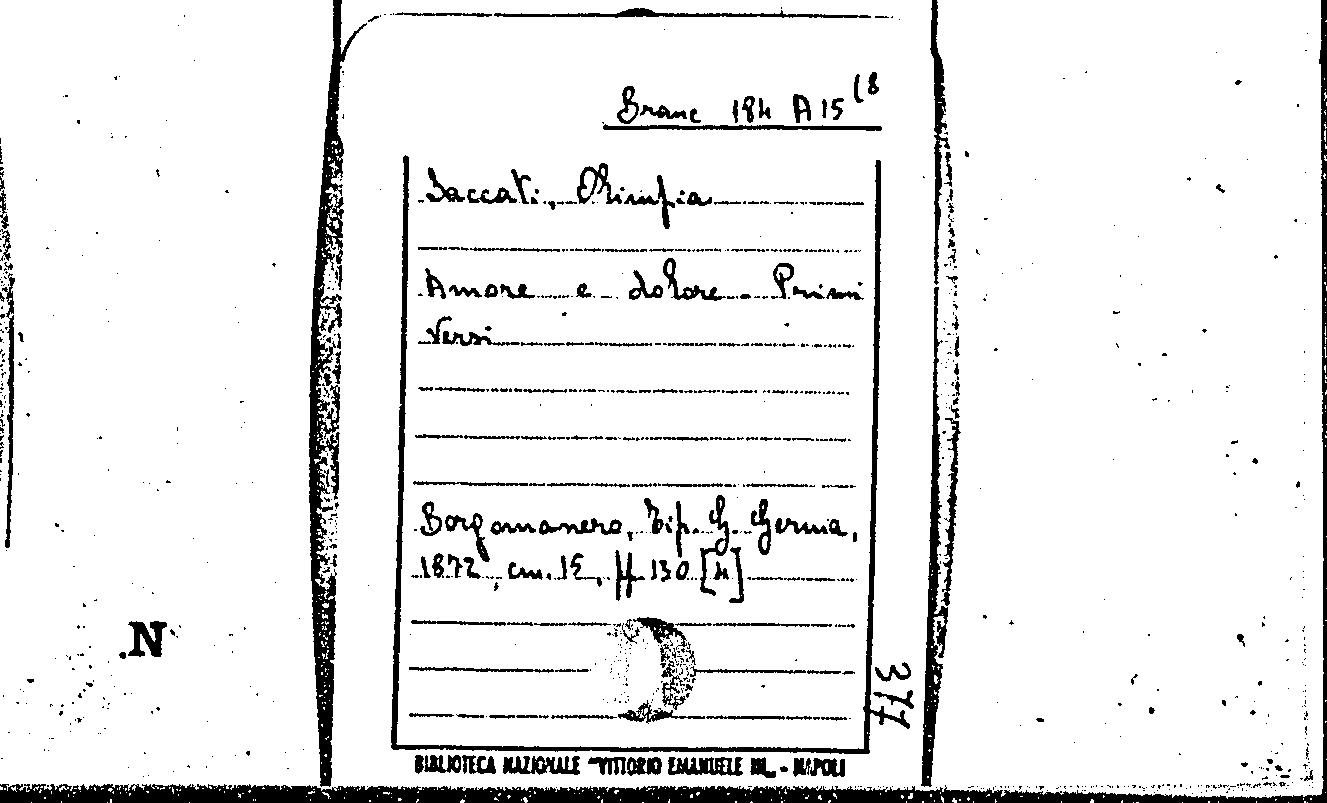 Branc 184 A 15 (8
Saccati, Olimpia
Amore e dolore - Primi
Versi
Borgomanero, Tip. G. Germa,
1872, cm. 15, pp 130 [4]
377
N
BIBLIOTECA NAZIONALE "VITTORIO EMANUELE III" - NAPOLI